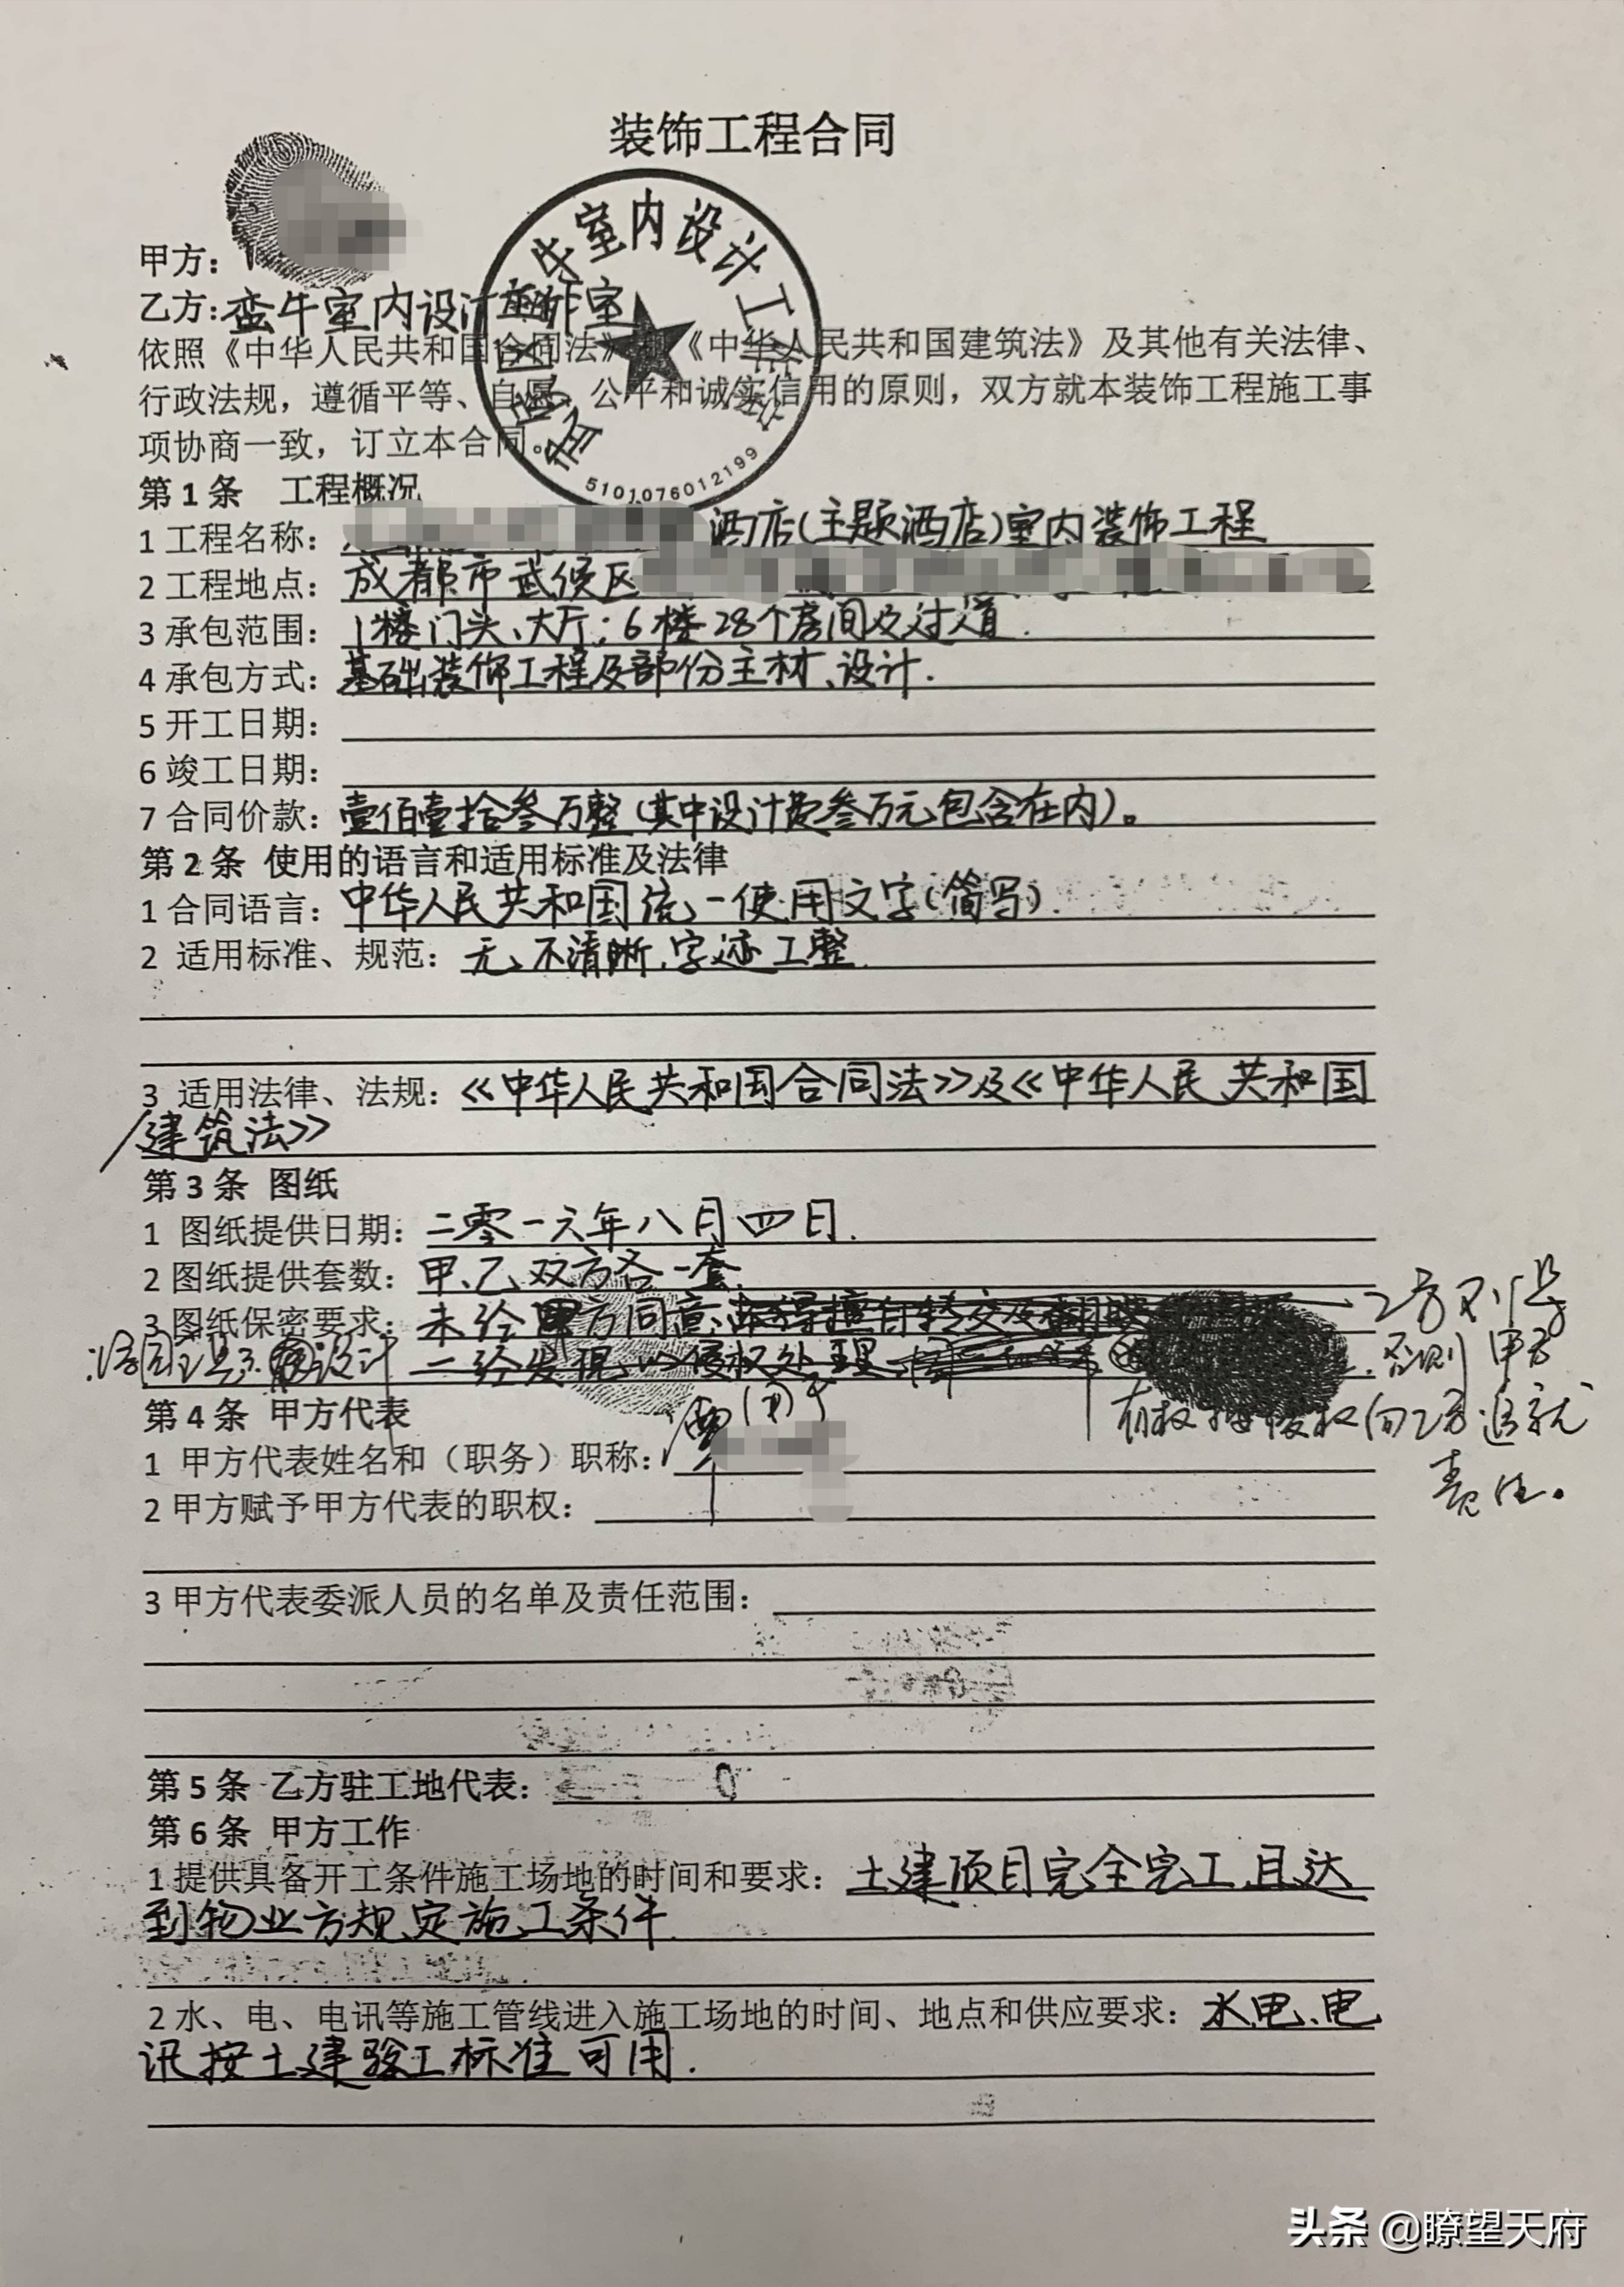 装饰工程合同
甲方：
乙方：蛮牛室内设计工作室
牛室内设计工
5101076012199
依照《中华人民共和国合同法》《中华人民共和国建筑法》及其他有关法律、
行政法规，遵循平等、自愿、公平和诚实信用的原则，双方就本装饰工程施工事
项协商一致，订立本合同。
第1条 工程概况
1 工程名称：酒店(主题酒店)室内装饰工程
2 工程地点：成都市武侯区
3 承包范围：1楼门头、大厅；6楼28个房间及过道.
4 承包方式：基础装饰工程及部份主材、设计.
5 开工日期：
6 竣工日期：
7 合同价款：壹佰壹拾叁万整(其中设计费叁万元包含在内)。
第2条 使用的语言和适用标准及法律
1 合同语言：中华人民共和国统一使用文字(简写).
2 适用标准、规范：无、不清晰、字迹工整.
3 适用法律、法规：《中华人民共和国合同法》及《中华人民共和国
建筑法》
第3条 图纸
1 图纸提供日期：二零一六年八月四日.
2 图纸提供套数：甲、乙双方各一套.
3 图纸保密要求：未经甲方同意、乙方不得
一经发现、以侵权处理 否则甲方
有权 侵权向乙方追究
责任。
第4条 甲方代表
1 甲方代表姓名和（职务）职称：
2 甲方赋予甲方代表的职权：
3 甲方代表委派人员的名单及责任范围：
第5条 乙方驻工地代表：
第6条 甲方工作
1 提供具备开工条件施工场地的时间和要求：土建项目完全完工且达
到物业方规定施工条件.
2 水、电、电讯等施工管线进入施工场地的时间、地点和供应要求：水电、电
讯按土建竣工标准可用.
头条 @瞭望天府